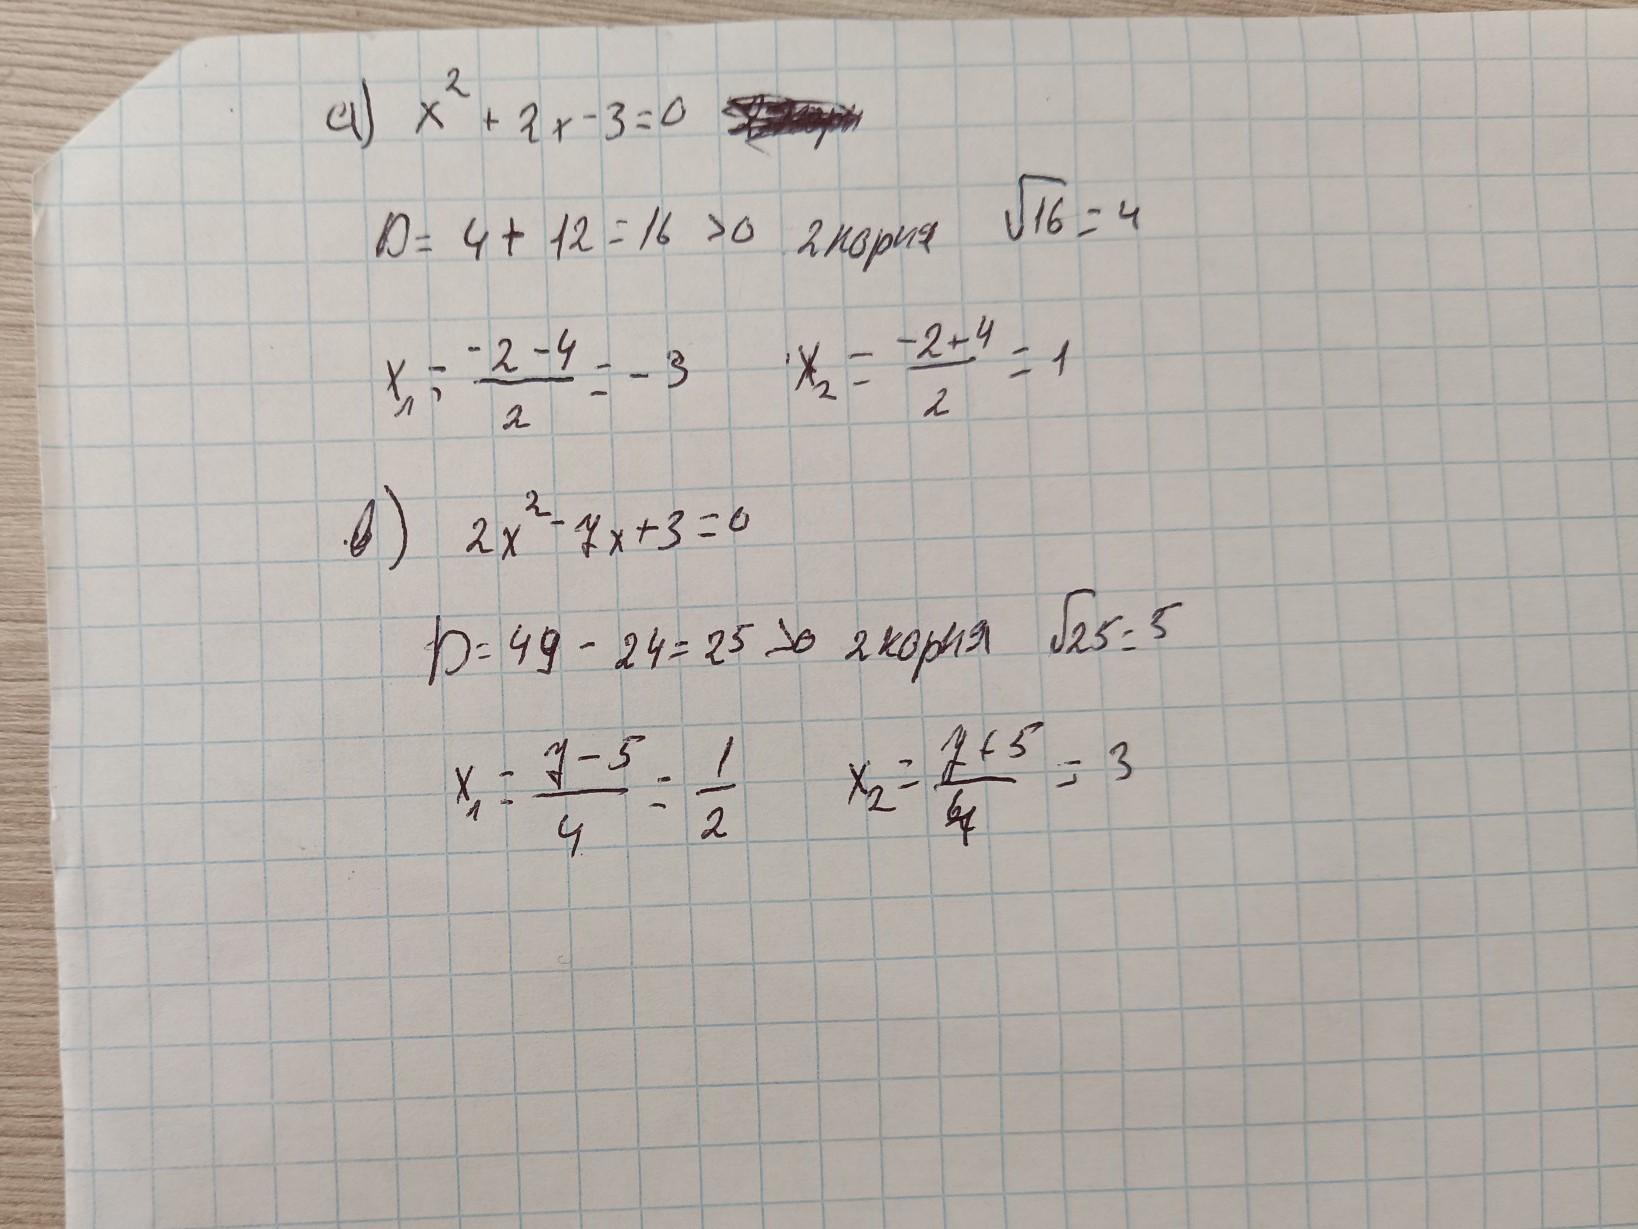 а) x² + 2x - 3 = 0
D = 4 + 12 = 16 > 0 2 корня √16 = 4
x₁ = (-2 - 4)/2 = -3 x₂ = (-2 + 4)/2 = 1
в) 2x² - 7x + 3 = 0
D = 49 - 24 = 25 > 0 2 корня √25 = 5
x₁ = (7 - 5)/4 = 1/2 x₂ = (7 + 5)/4 = 3